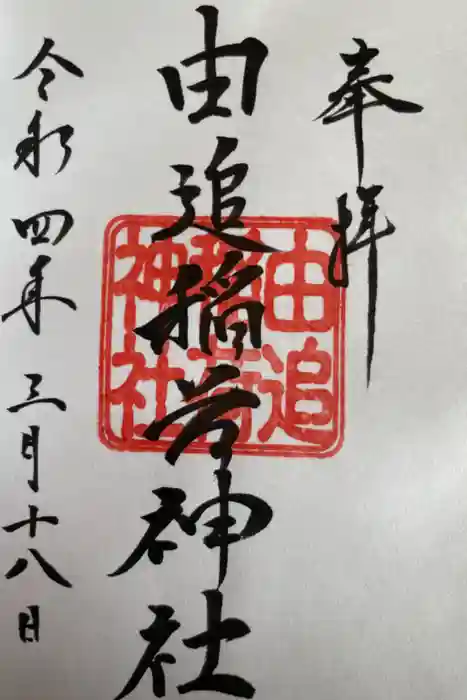 奉拝
由追稲荷神社
由追
稲荷
神社
令和四年三月十八日